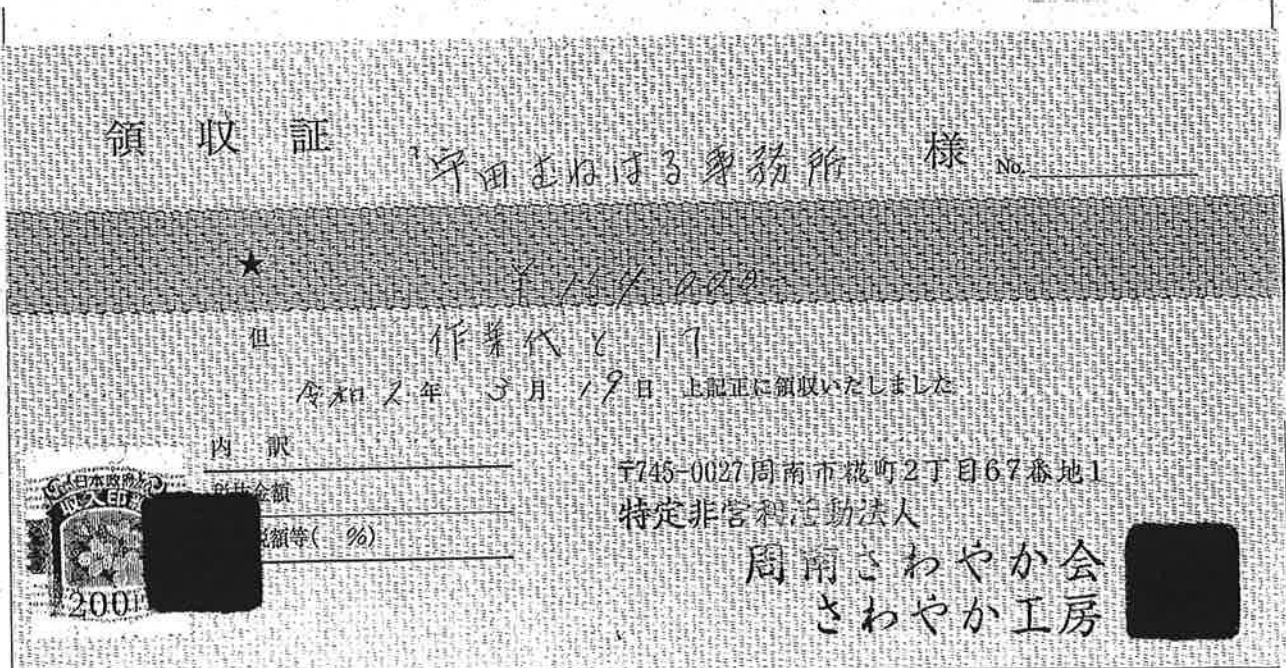 領収証 守田むねはる事務所 様 No.
★ ¥164,000
但 作業代として
令和2年3月19日 上記正に領収いたしました
内訳
税抜金額
税額等( %)
日本政府
収入印
200
〒745-0027周南市糀町2丁目67番地1
特定非営利活動法人
周南さわやか会
さわやか工房